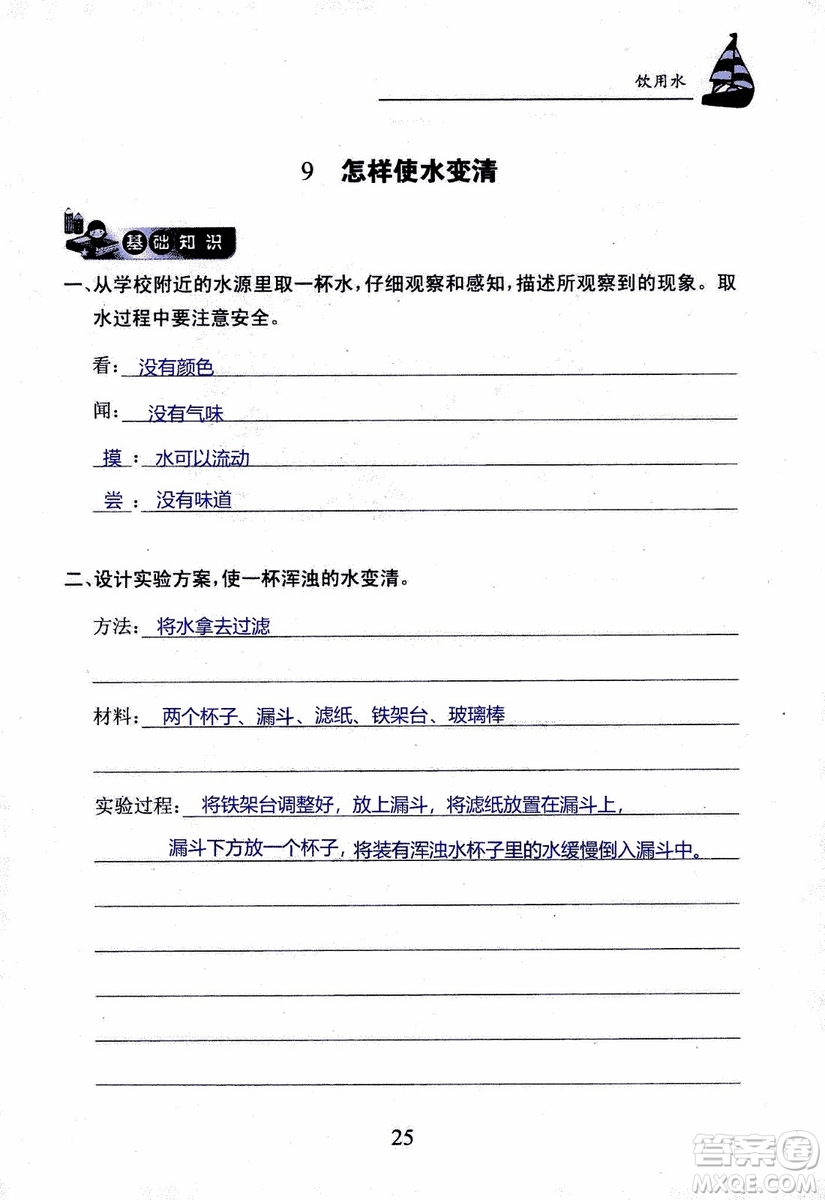 饮用水
9 怎样使水变清
基础知识
一、从学校附近的水源里取一杯水,仔细观察和感知,描述所观察到的现象。取
水过程中要注意安全。
看:没有颜色
闻:没有气味
摸:水可以流动
尝:没有味道
二、设计实验方案,使一杯浑浊的水变清。
方法:将水拿去过滤
材料:两个杯子、漏斗、滤纸、铁架台、玻璃棒
实验过程:将铁架台调整好,放上漏斗,将滤纸放置在漏斗上,
漏斗下方放一个杯子,将装有浑浊水杯子里的水缓慢倒入漏斗中。
25
答案圈
MXQE.COM